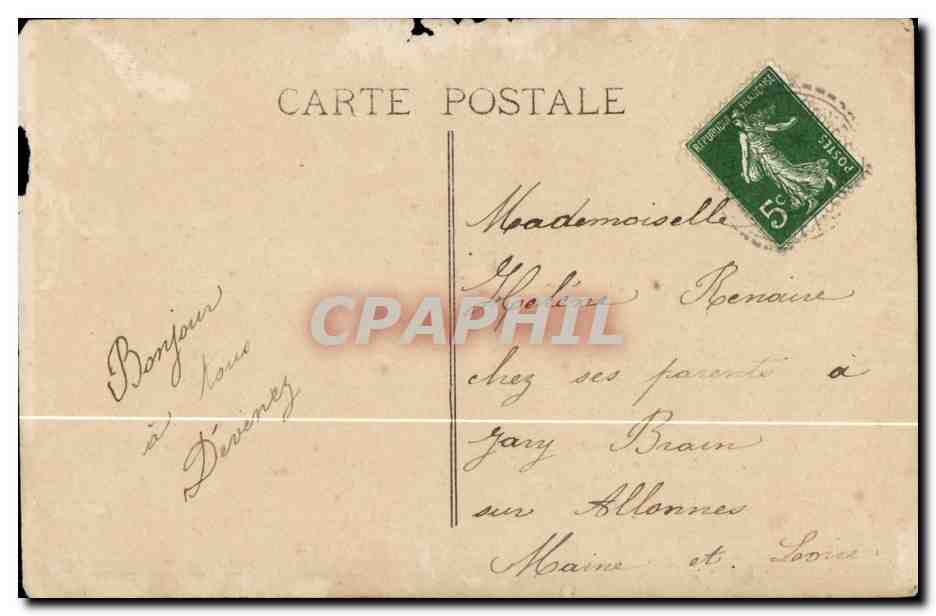 CARTE POSTALE
REPUBLIQUE FRANCAISE
POSTES
5c
Bonjour
à tous
Dévinez
Mademoiselle
Heléne Renaire
chez ses parents à
Jary Brain
sur Allonnes
Maine et Loire
CPAPHIL